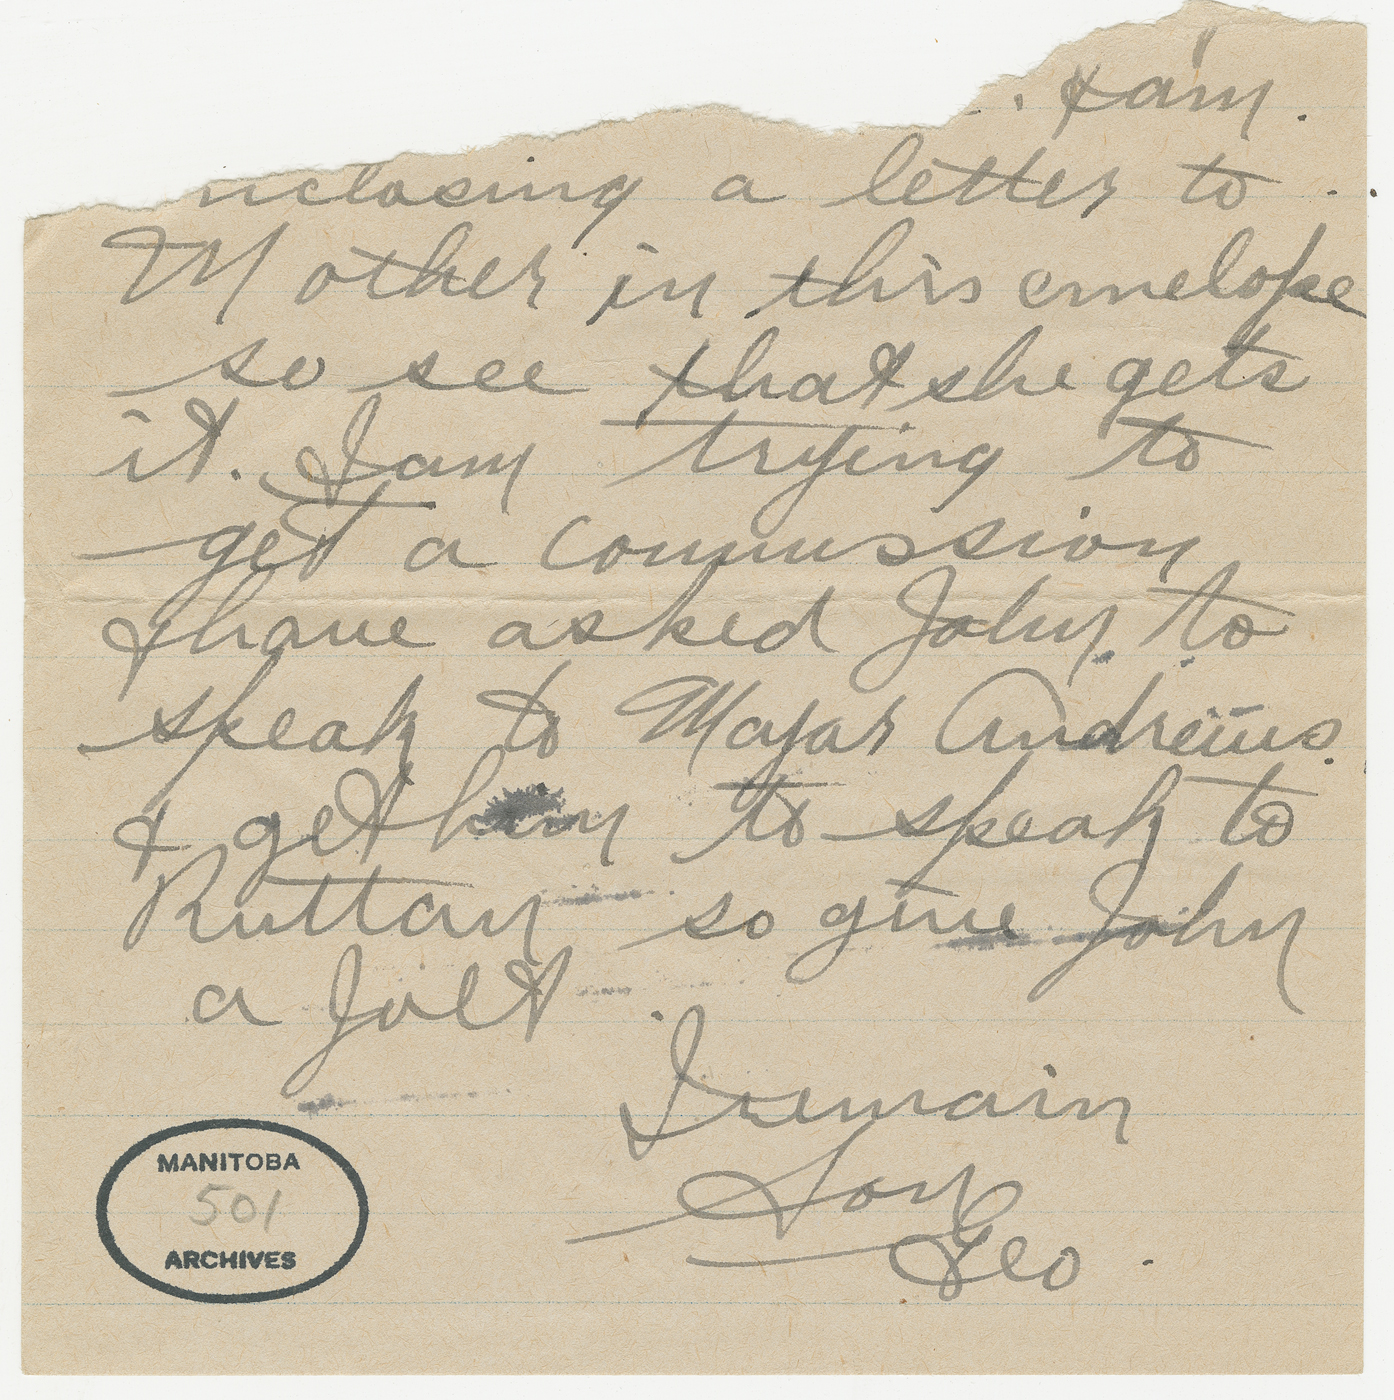 & am
nclosing a letter to
Mother in this envelope
so see that she gets
it. I am trying to
get a commission
& have asked John to
speak to Major Andrews
& get him to speak to
Ruttan so give John
a Jolt.
I remain
Son
Geo.
MANITOBA
501
ARCHIVES